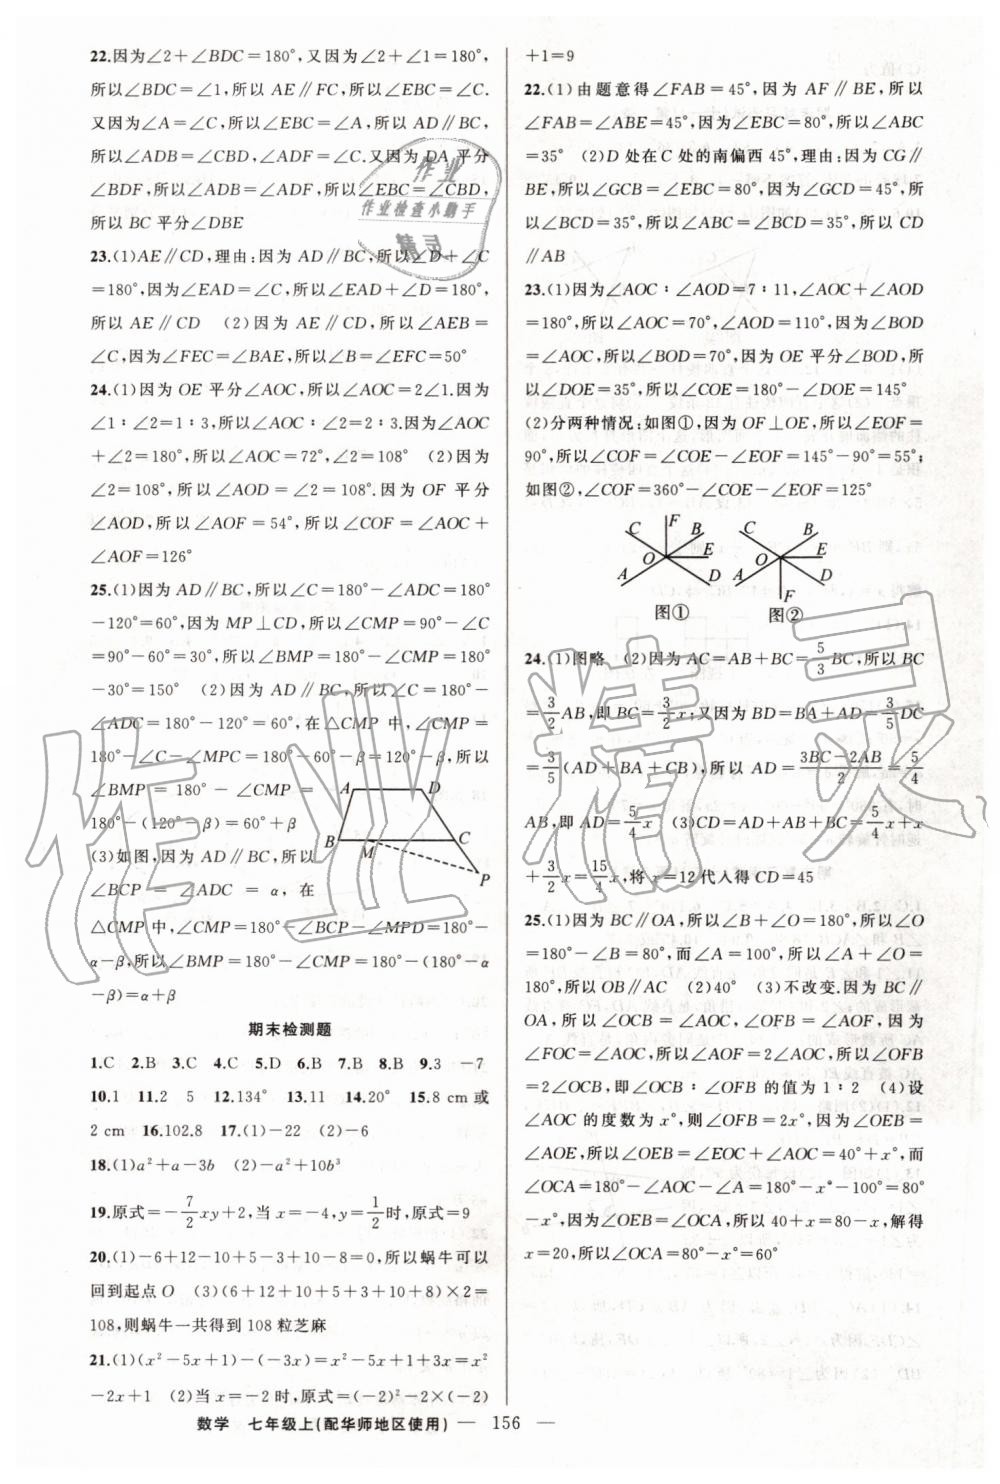 22.因为∠2+∠BDC=180°,又因为∠2+∠1=180°,
所以∠BDC=∠1,所以 AE∥FC,所以∠EBC=∠C.
又因为∠A=∠C,所以∠EBC=∠A,所以 AD∥BC,
所以∠ADB=∠CBD,∠ADF=∠C.又因为 DA 平分
∠BDF,所以∠ADB=∠ADF,所以∠EBC=∠CBD,
所以 BC 平分∠DBE
23.(1)AE∥CD,理由:因为 AD∥BC,所以∠D+∠C
=180°,因为∠EAD=∠C,所以∠EAD+∠D=180°,
所以 AE∥CD (2)因为 AE∥CD,所以∠AEB=
∠C,因为∠FEC=∠BAE,所以∠B=∠EFC=50°
24.(1)因为 OE 平分∠AOC,所以∠AOC=2∠1.因为
∠1∶∠2=1∶3,所以∠AOC∶∠2=2∶3.因为∠AOC
+∠2=180°,所以∠AOC=72°,∠2=108° (2)因为
∠2=108°,所以∠AOD=∠2=108°.因为 OF 平分
∠AOD,所以∠AOF=54°,所以∠COF=∠AOC+
∠AOF=126°
25.(1)因为 AD∥BC,所以∠C=180°-∠ADC=180°
-120°=60°,因为 MP⊥CD,所以∠CMP=90°-∠C
=90°-60°=30°,所以∠BMP=180°-∠CMP=180°
-30°=150° (2)因为 AD∥BC,所以∠C=180°-
∠ADC=180°-120°=60°,在△CMP 中,∠CMP=
180°-∠C-∠MPC=180°-60°-β=120°-β,所以
∠BMP=180°-∠CMP=
180°-(120°-β)=60°+β
(3)如图,因为 AD∥BC,所以
∠BCP=∠ADC=α,在
△CMP 中,∠CMP=180°-∠BCP-∠MPD=180°-
α-β,所以∠BMP=180°-∠CMP=180°-(180°-α
-β)=α+β
A D
B M C
P
期末检测题
1.C 2.B 3.C 4.C 5.D 6.B 7.B 8.B 9.3 -7
10.1 11.2 5 12.134° 13.11 14.20° 15.8 cm或
2 cm 16.102.8 17.(1)-22 (2)-6
18.(1)a²+a-3b (2)-a²+10b³
19.原式=-7/2xy+2,当 x=-4,y=1/2时,原式=9
20.(1)-6+12-10+5-3+10-8=0,所以蜗牛可以
回到起点 O (3)(6+12+10+5+3+10+8)×2=
108,则蜗牛一共得到 108 粒芝麻
21.(1)(x²-5x+1)-(-3x)=x²-5x+1+3x=x²
-2x+1 (2)当 x=-2 时,原式=(-2)²-2×(-2)
+1=9
22.(1)由题意得∠FAB=45°,因为 AF∥BE,所以
∠FAB=∠ABE=45°,因为∠EBC=80°,所以∠ABC
=35° (2)D 处在 C 处的南偏西 45°,理由:因为 CG∥
BE,所以∠GCB=∠EBC=80°,因为∠GCD=45°,所
以∠BCD=35°,所以∠ABC=∠BCD=35°,所以 CD
∥AB
23.(1)因为∠AOC∶∠AOD=7∶11,∠AOC+∠AOD
=180°,所以∠AOC=70°,∠AOD=110°,因为∠BOD
=∠AOC,所以∠BOD=70°,因为 OE 平分∠BOD,所
以∠DOE=35°,所以∠COE=180°-∠DOE=145°
(2)分两种情况:如图①,因为 OF⊥OE,所以∠EOF=
90°,所以∠COF=∠COE-∠EOF=145°-90°=55°;
如图②,∠COF=360°-∠COE-∠EOF=125°
C F B O E A D
C B O E A F D
图① 图②
24.(1)图略 (2)因为 AC=AB+BC=5/3BC,所以 BC
=3/2AB,即 BC=3/2x;又因为 BD=BA+AD=3/5DC
=3/5(AD+BA+CB),所以 AD=(3BC-2AB)/2=5/4
AB,即 AD=5/4x (3)CD=AD+AB+BC=5/4x+x
+3/2x=15/4x,将 x=12 代入得 CD=45
25.(1)因为 BC∥OA,所以∠B+∠O=180°,所以∠O
=180°-∠B=80°,而∠A=100°,所以∠A+∠O=
180°,所以 OB∥AC (2)40° (3)不改变.因为 BC∥
OA,所以∠OCB=∠AOC,∠OFB=∠AOF,因为
∠FOC=∠AOC,所以∠AOF=2∠AOC,所以∠OFB
=2∠OCB,即∠OCB∶∠OFB 的值为 1∶2 (4)设
∠AOC 的度数为 x°,则∠OFB=2x°,因为∠OEB=
∠AOE,所以∠OEB=∠EOC+∠AOC=40°+x°,而
∠OCA=180°-∠AOC-∠A=180°-x°-100°=80°
-x°,因为∠OEB=∠OCA,所以 40+x=80-x,解得
x=20,所以∠OCA=80°-x°=60°
作业
作业检查小助手
精灵
作业精灵
数学 七年级上(配华师地区使用) — 156 —